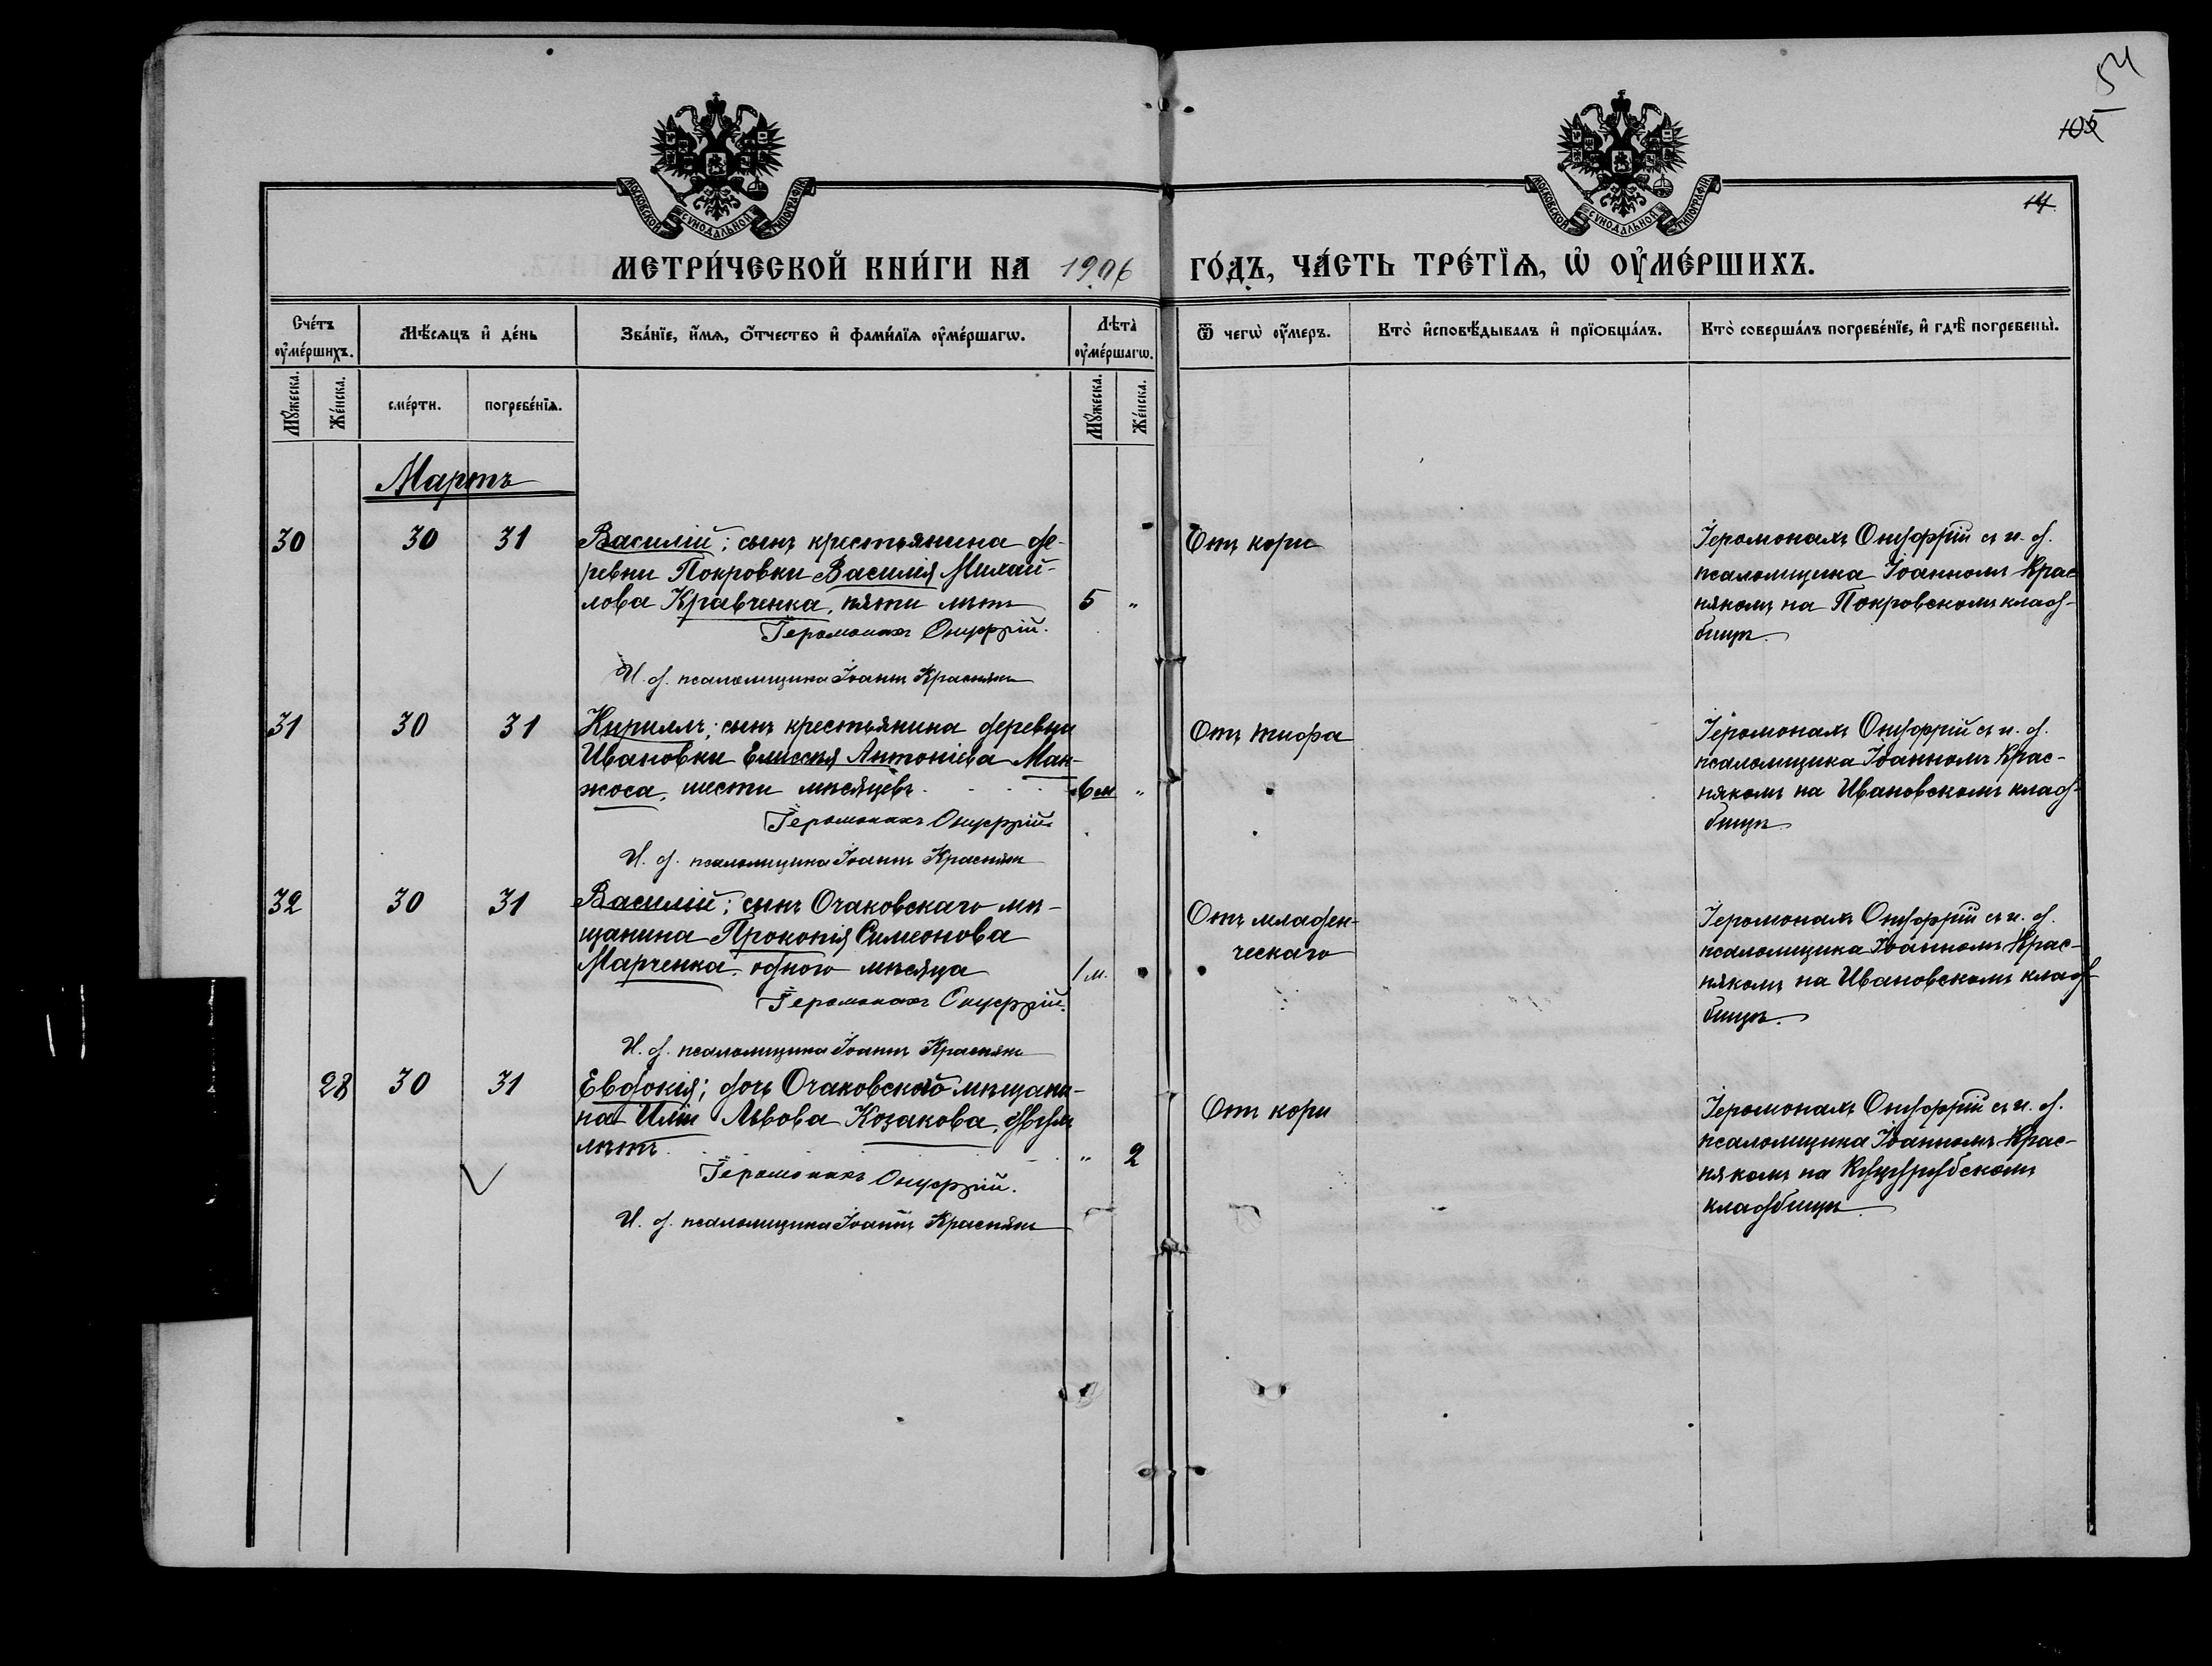 54
105
14.
МОСКОВСКОЙ СУНОДАЛЬНОЙ ТИПОГРАФІИ
МОСКОВСКОЙ СУНОДАЛЬНОЙ ТИПОГРАФІИ
МЕТРИ́ЧЕСКОЙ КНИ́ГИ НА 1906 ГО́ДЪ, ЧА́СТЬ ТРЕ́ТЇѦ, Ѡ҆ ОУ҆МЕ́РШИХЪ.
Сче́тъ оу҆ме́ршихъ.
Мѣ́сяцъ и҆ де́нь
Зва́нїе, и҆́мѧ, ѻ҆́тчество и҆ фами́лїѧ оу҆ме́ршагѡ.
Лѣ́та оу҆ме́ршагѡ.
Ѿ чегѡ̀ оу҆́меръ.
Кто̀ и҆сповѣ́дывалъ и҆ прїѻбща́лъ.
Кто̀ соверша́лъ погребе́нїе, и҆ гдѣ̀ погребены̀.
Мꙋ́жеска.
Же́нска.
сме́рти.
погребе́нїѧ.
Мꙋ́жеска.
Же́нска.
Мартъ
30 30 31 Василій; сынъ крестьянина де-
ревни Покровки Василія Михай-
лова Кравченка, пяти лѣтъ 5 "
Іеромонахъ Онуфрій.
И. д. псаломщика Іоаннъ Краснякъ
Отъ кори
Іеромонахъ Онуфрій съ и. д.
псаломщика Іоанномъ Крас
някомъ на Покровскомъ клад-
бищѣ.
31 30 31 Кириллъ; сынъ крестьянина деревни
Ивановки Елиссея Антоніева Ман-
жоса, шести мѣсяцевъ. 6 м "
Іеромонахъ Онуфрій
И. д. псаломщика Іоаннъ Краснякъ
Отъ тифа
Іеромонахъ Онуфрій съ и. д.
псаломщика Іоанномъ Крас-
някомъ на Ивановскомъ клад-
бищѣ
32 30 31 Василій; сынъ Очаковскаго мѣ-
щанина Прокопія Симеонова
Марченка, одного мѣсяца 1 м.
Іеромонахъ Онуфрій.
И. д. псаломщика Іоаннъ Краснякъ
Отъ младен-
ческаго
Іеромонахъ Онуфрій съ и. д.
псаломщика Іоанномъ Крас-
някомъ на Ивановскомъ клад-
бищѣ.
28 30 31 Евдокія; дочь Очаковскаго мѣщани-
на Иліи Львова Козакова, двухъ
лѣтъ " 2
Іеромонахъ Онуфрій.
И. д. псаломщика Іоаннъ Краснякъ
Отъ кори
Іеромонахъ Онуфрій съ и. д.
псаломщика Іоанномъ Крас-
някомъ на Куцурубскомъ
кладбищѣ.